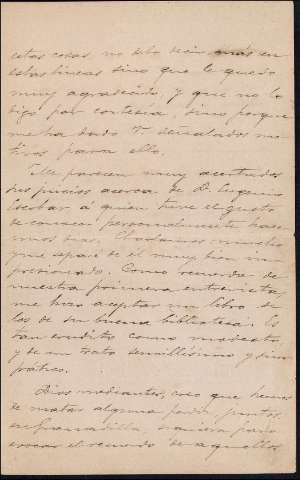 estas cosas no debo decir más en
estas líneas sino que le quedo
muy agradecido, y que no lo
digo por cortesía, sino porque
me ha dado V. señalados mo-
tivos para ello.
Me parecen muy acertados
sus juicios acerca de D. Eugenio
Escobar á quien tuve el gusto
de conocer personalmente hace
unos dias. Charlamos mucho
y me separé de el muy bien im-
presionado. Como recuerdo de
nuestra primera entrevista,
me hizo aceptar un libro de
los de su buena biblioteca. Es
tan erudito como modesto,
y de un trato sencillísimo y sim-
pático.
Dios mediante, creo que hemos
de matar alguna juntos
en Granadilla, siquiera para
evocar el recuerdo de aquellos